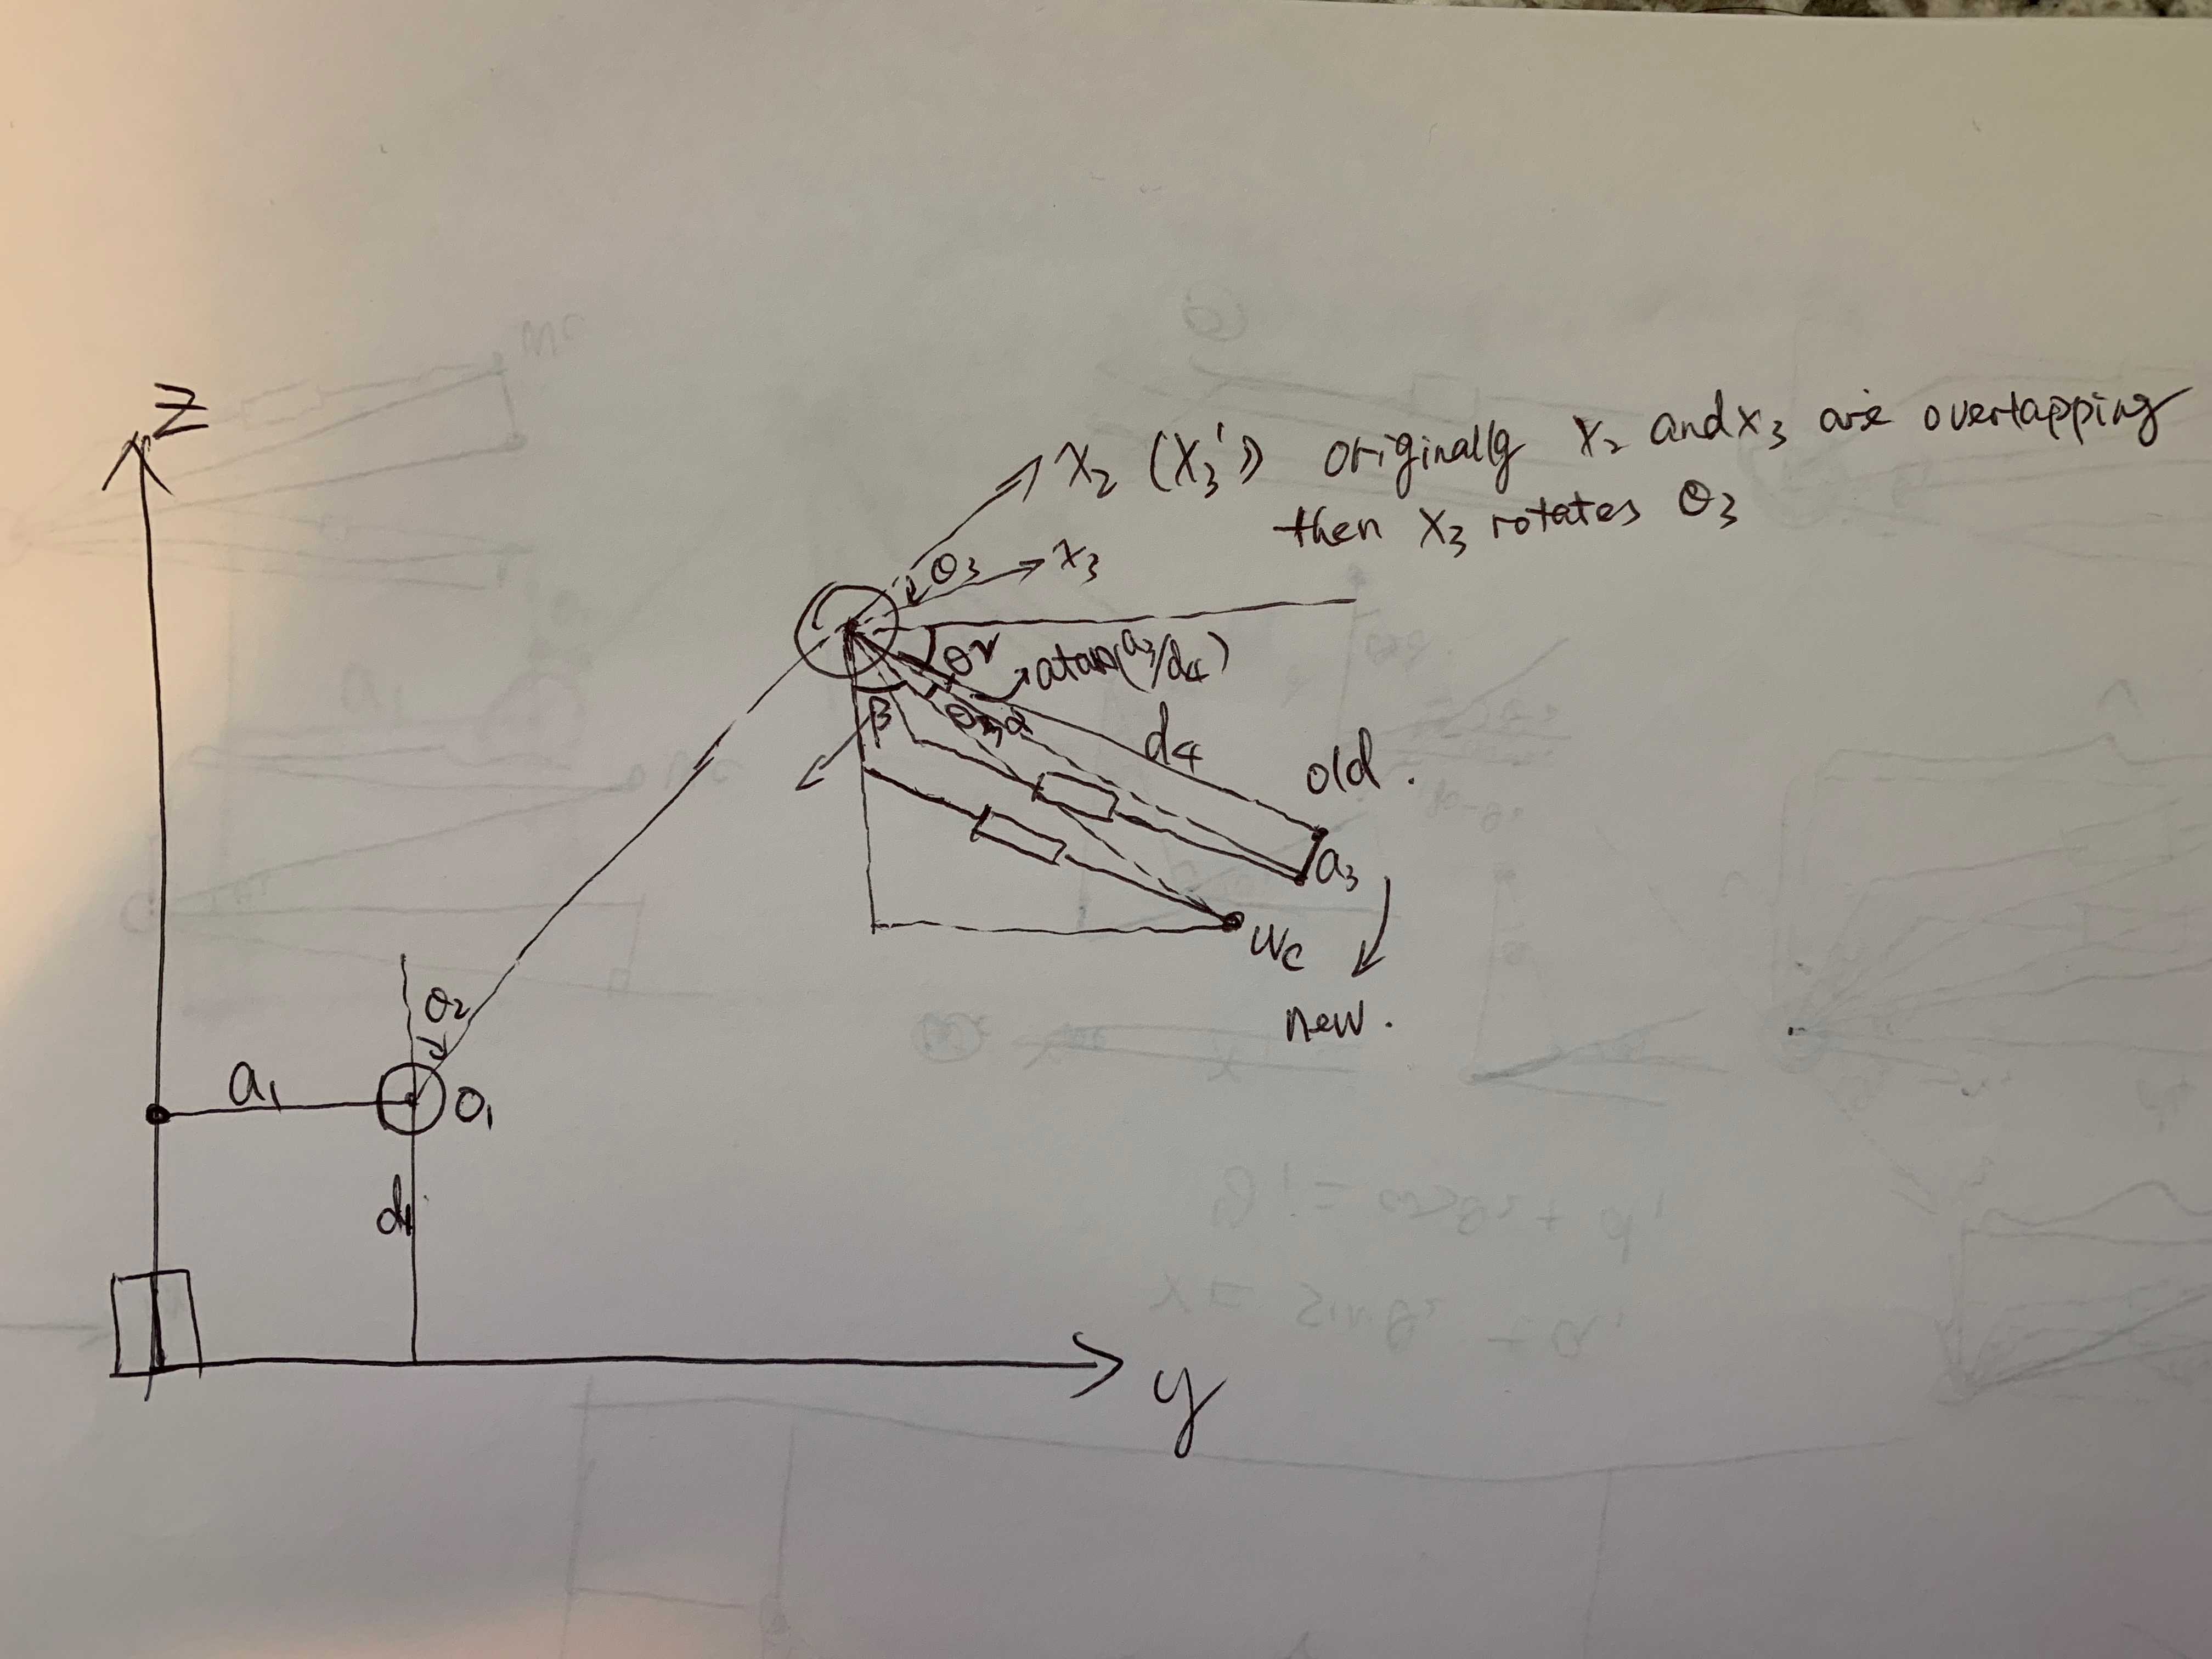 Z
X₂ (X₃') originally X₂ and X₃ are overlapping
then X₃ rotates θ₃
θ₃
X₃
θ₂
atan(a₃/d₄)
β
d₄
old .
a₃
Wc
new .
θ₂
a₁
O₁
d₁
y